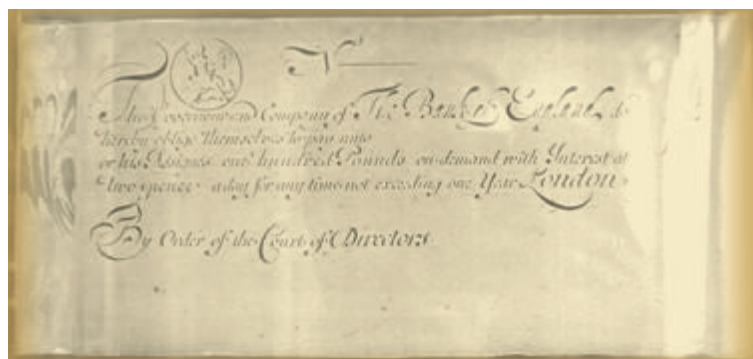 N
The Governour and Company of The Bank of England do
hereby oblige themselves to pay unto
or his Assignes one hundred Pounds on demand with Interest at
two pence a day for any time not exceeding one Year London
By Order of the Court of Directors